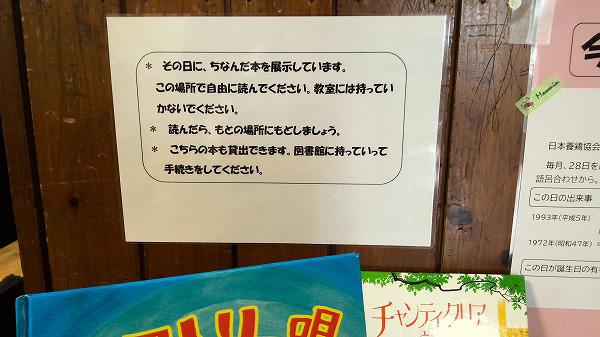 * その日に、ちなんだ本を展示しています。
この場所で自由に読んでください。教室には持ってい
かないでください。
* 読んだら、もとの場所にもどしましょう。
* こちらの本も貸出できます。図書館に持っていって
手続きをしてください。
日本養鶏協会
毎月、28日を
語呂合わせから。
この日の出来事
1993年(平成5年)
1972年(昭和47年)
この日が誕生日の有
チャンティクリア